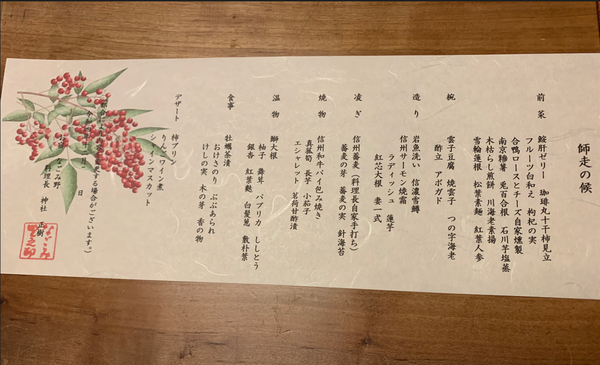 師走の候
前菜
鮟肝ゼリー 珈琲丸十干柿見立
フルーツ白和え 枸杞の実
合鴨ロースとチーズ自家燻製
南京糝薯 兎百合根 石川芋塩蒸
木枯らし煎餅 川海老素揚
雪輪蓮根 松葉素麺 紅葉人参
椀
雲子豆腐 焼雲子 つの字海老
酢立 アボガド
造り
岩魚洗い 信濃雪鱒
信州サーモン焼霜 蓮芋
ラディッシュ
紅芯大根 妻一式
凌ぎ
信州蕎麦（料理長自家手打ち）
蕎麦の芽 蕎麦の実 針海苔
焼物
信州和牛パイ包み焼き
真菰筍 長芋 小茄子
エシャレット 茗荷甘酢漬
温物
鰤大根
柚子 舞茸 パプリカ ししとう
銀杏 紅葉麩 白髪葱 敷朴葉
食事
牡蠣茶漬
おけさのり ぶぶあられ
けしの実 木の芽 香の物
デザート
柿プリン
りんごワイン煮
シャインマスカット
する場合がございます）
日
なごみ野
料理長 神社